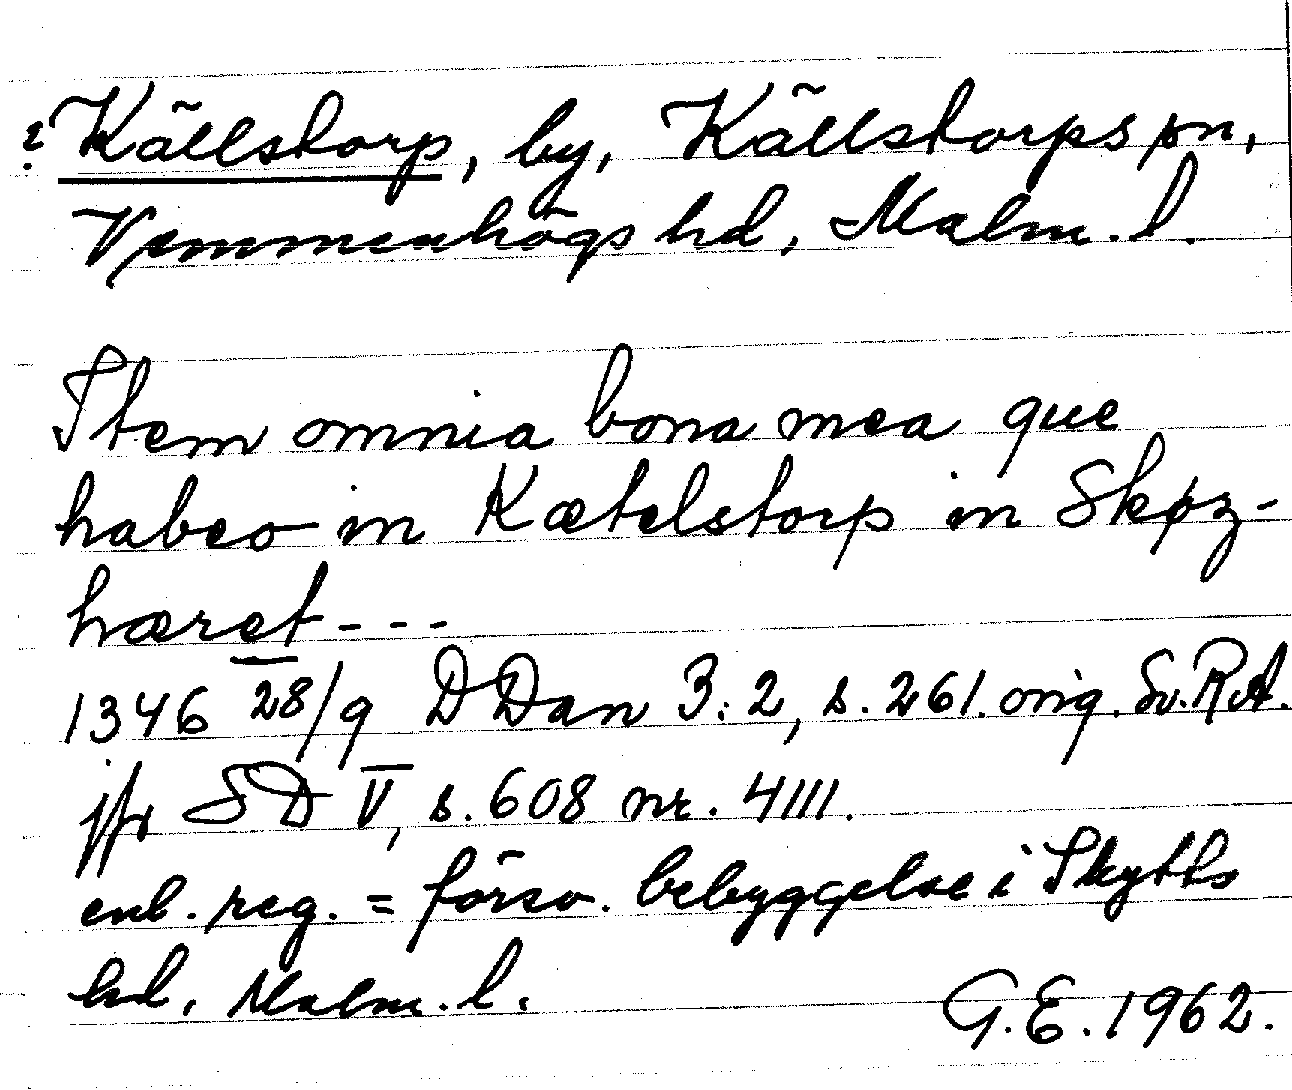 ? Källstorp, by, Källstorps sn,
Vemmenhögs hd, Malm. l.
Item omnia bona mea que
habeo in Kætelstorp in Skøz-
hæret - - -
1346 28/9 DDan 3:2, s. 261. orig. Sv. RA.
jfr SD V, s. 608 nr. 4111.
enl. reg. = försv. bebyggelse i Skytts
hd, Malm. l.
G.E. 1962.